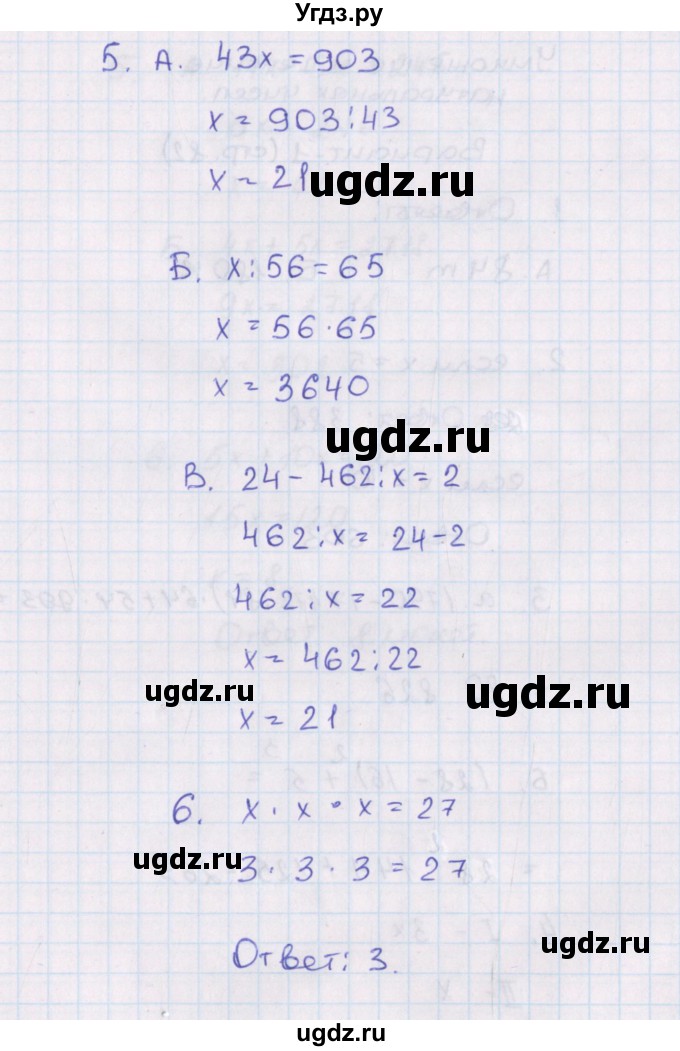 Угдз.ру
5. А. 43x = 903
x = 903 : 43
x = 21
ugdz.ru
Б. x : 56 = 65
x = 56 · 65
x = 3640
ugdz.ru
В. 24 - 462 : x = 2
462 : x = 24 - 2
462 : x = 22
x = 462 : 22
ugdz.ru
ugdz.ru
x = 21
6. x · x · x = 27
ugdz.ru
3 · 3 · 3 = 27
ugdz.ru
Ответ: 3.
ugdz.ru